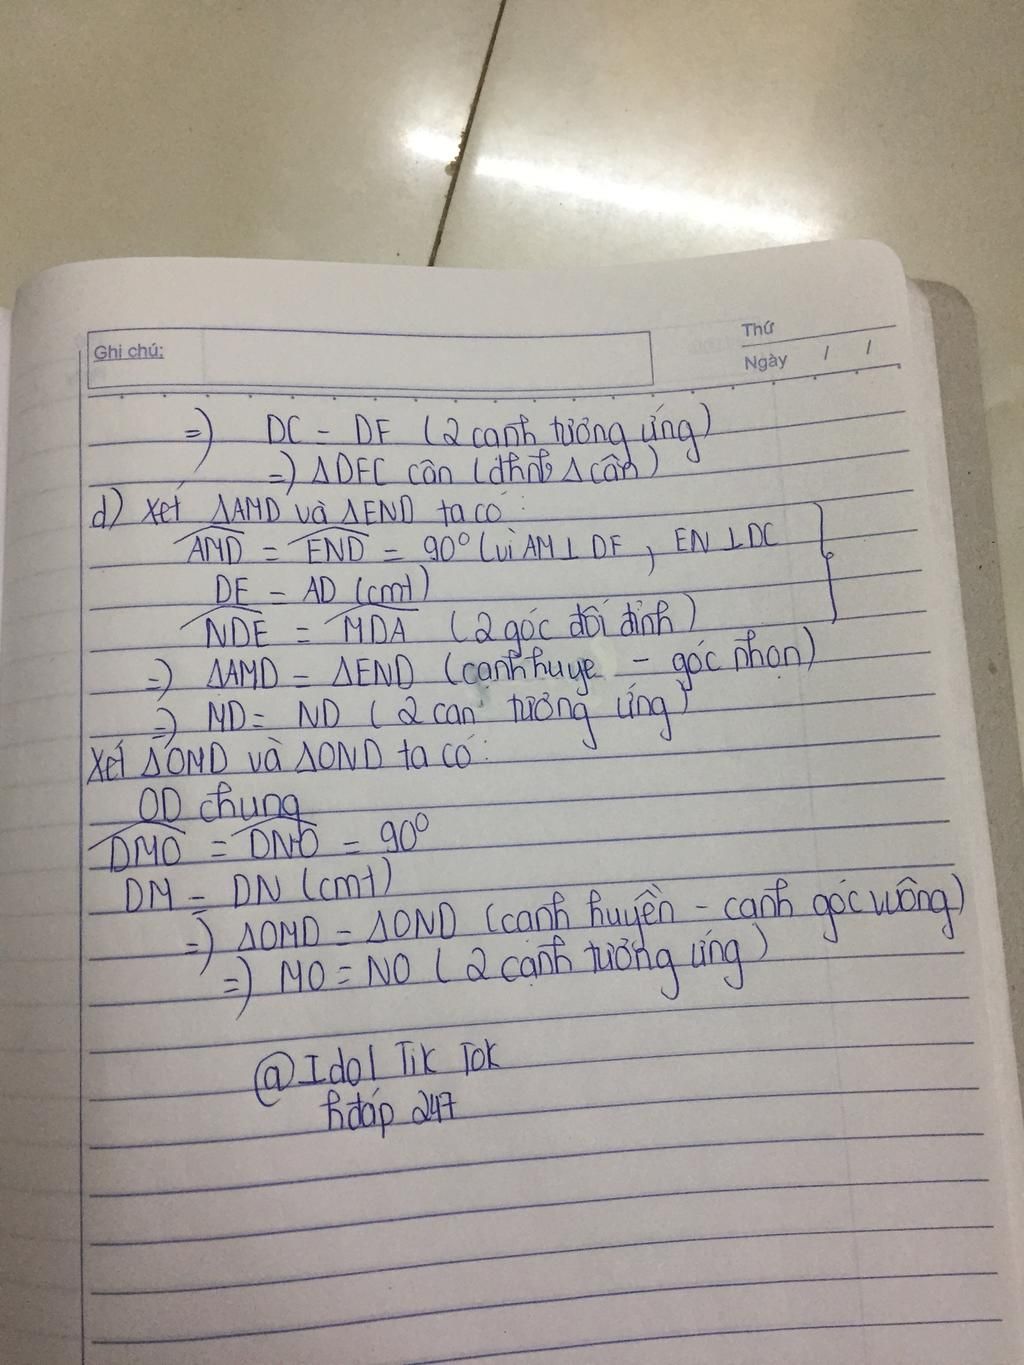 Ghi chú:
Thứ
Ngày / /
=) DC = DF (2 cạnh tương ứng)
=) ΔDFC cân (đhnb Δ cân)
d) Xét ΔAMD và ΔEND ta có:
AMD = END = 90° (vì AM ⊥ DF, EN ⊥ DC
DE = AD (cmt)
NDE = MDA (2 góc đối đỉnh)
=) ΔAMD = ΔEND (cạnh huyề - góc nhọn)
=) MD = ND (2 cạn tương ứng)
Xét ΔOMD và ΔOND ta có:
OD chung
DMO = DNO = 90°
DM = DN (cmt)
=) ΔOMD = ΔOND (cạnh huyền - cạnh góc vuông)
=) MO = NO (2 cạnh tương ứng)
@Idol Tik Tok
hđáp 247